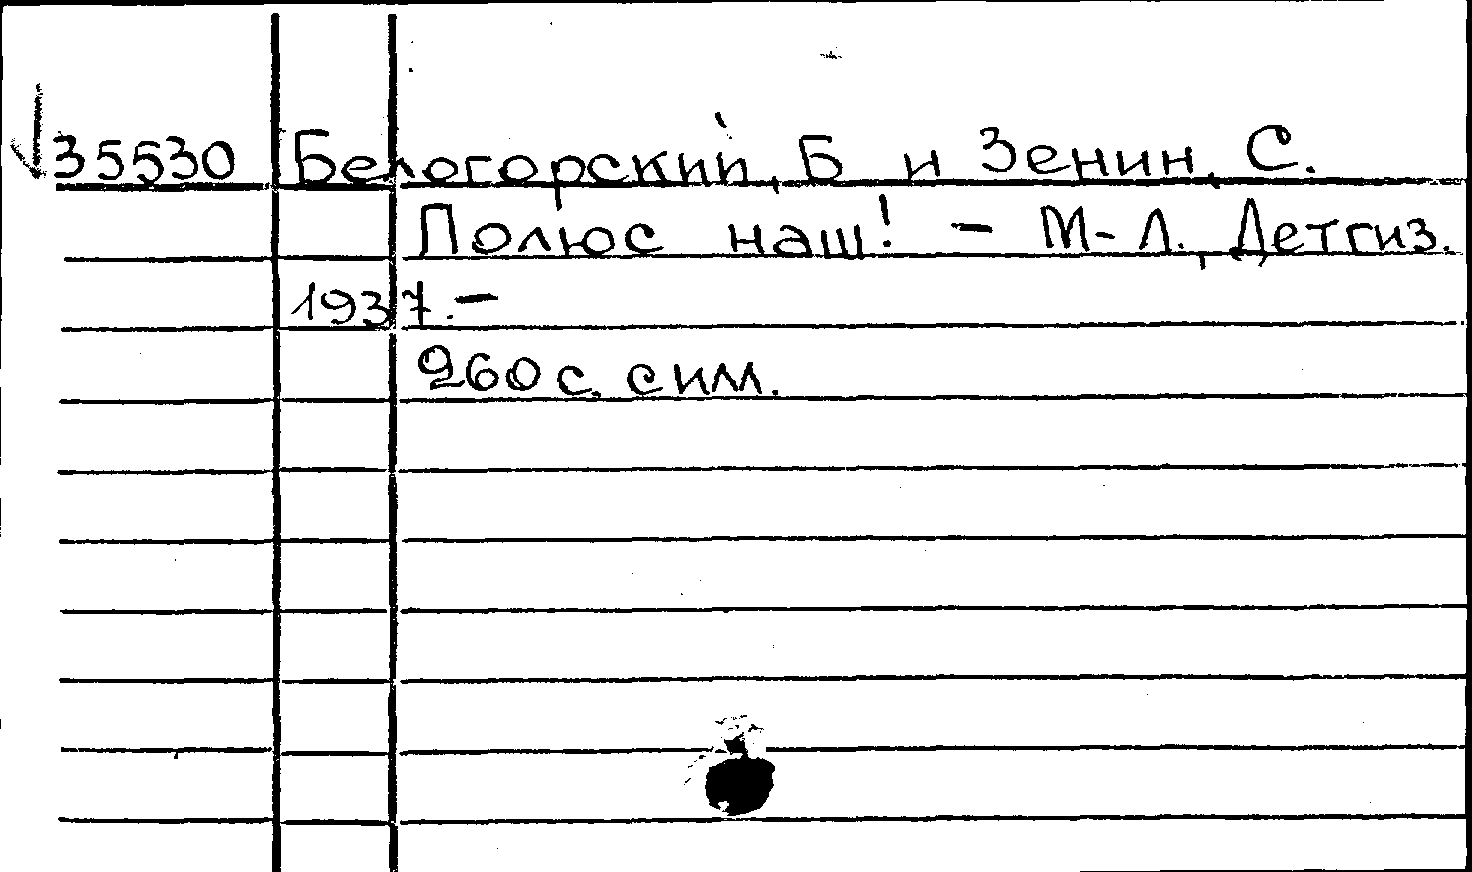 35530 Белогорский, Б и Зенин, С.
Полюс наш! - М-Л., Детгиз.
1937.-
260 с. сим.